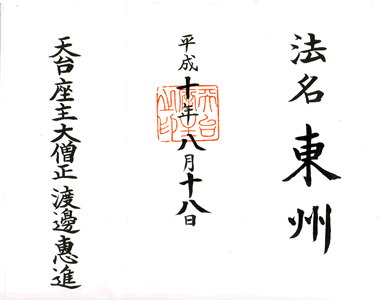 法名 東州
平成十年八月十八日
天台座主大僧正 渡邊惠進
天台座主之印